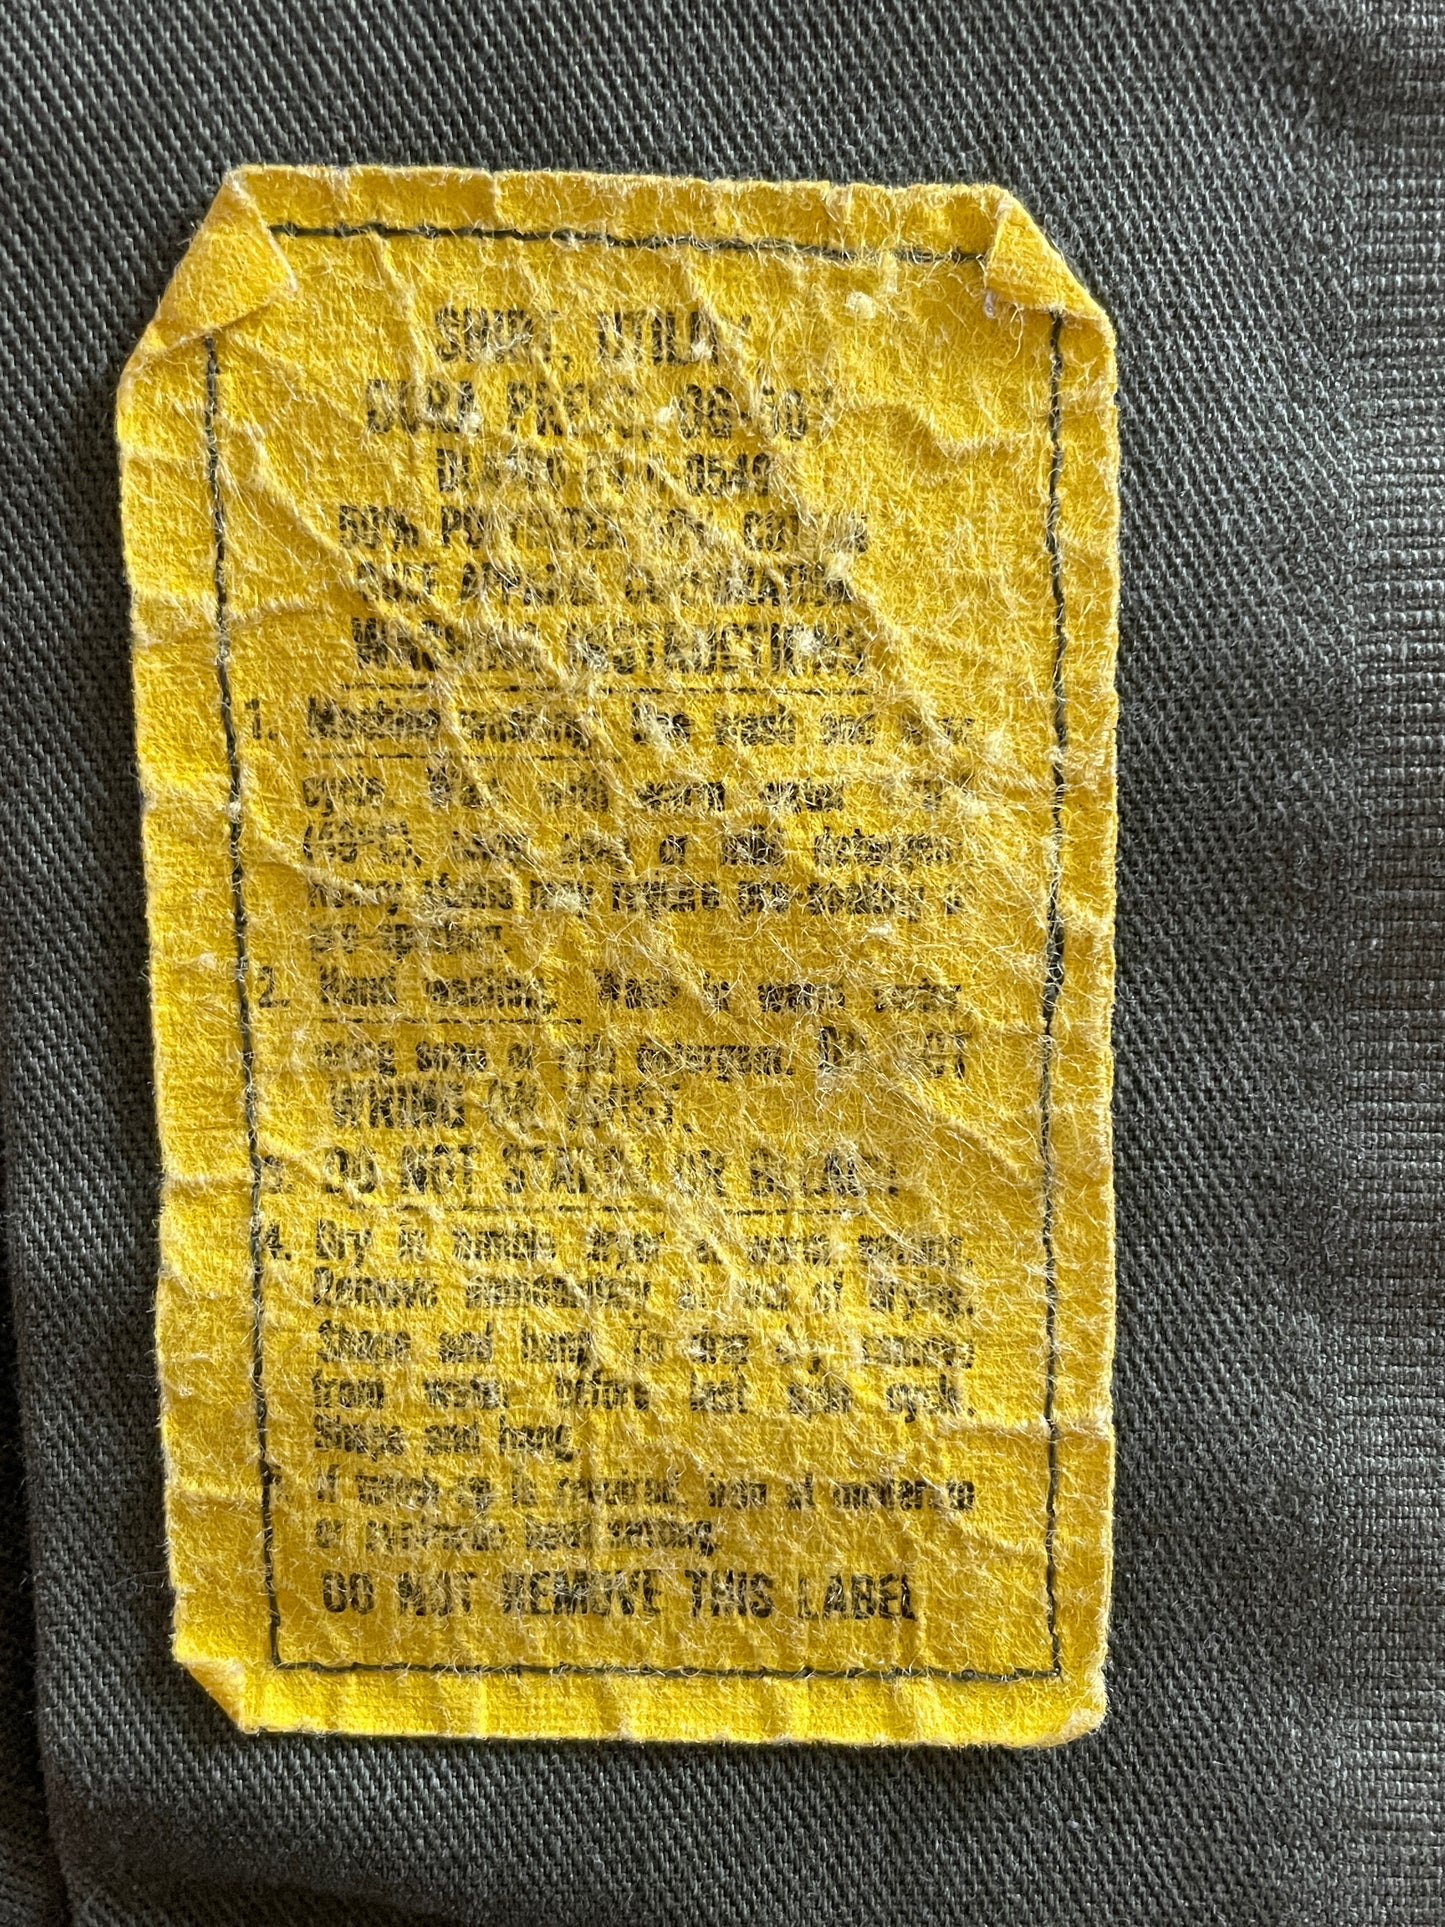 SHIRT, UTILITY
DURA PRESS, OG-507
0540
50% POLYESTER 50% COTTON
WASHING INSTRUCTIONS
1. Machine washing. Use wash and wear
cycle. Wash and water
soap or mild detergent
Heavy stains may require pre-soaking or
pre-spotting.
2. Hand washing. Wash in warm water
using soap or mild detergent. DO NOT
WRING OR TWIST.
3. DO NOT STARCH OR BLEACH
4. Dry in tumble dryer at warm setting.
Remove immediately at end of drying.
Shape and hang. To drip dry, remove
from water before last spin cycle.
Shape and hang.
If touch-up is required, iron at moderate
or synthetic heat setting.
DO NOT REMOVE THIS LABEL